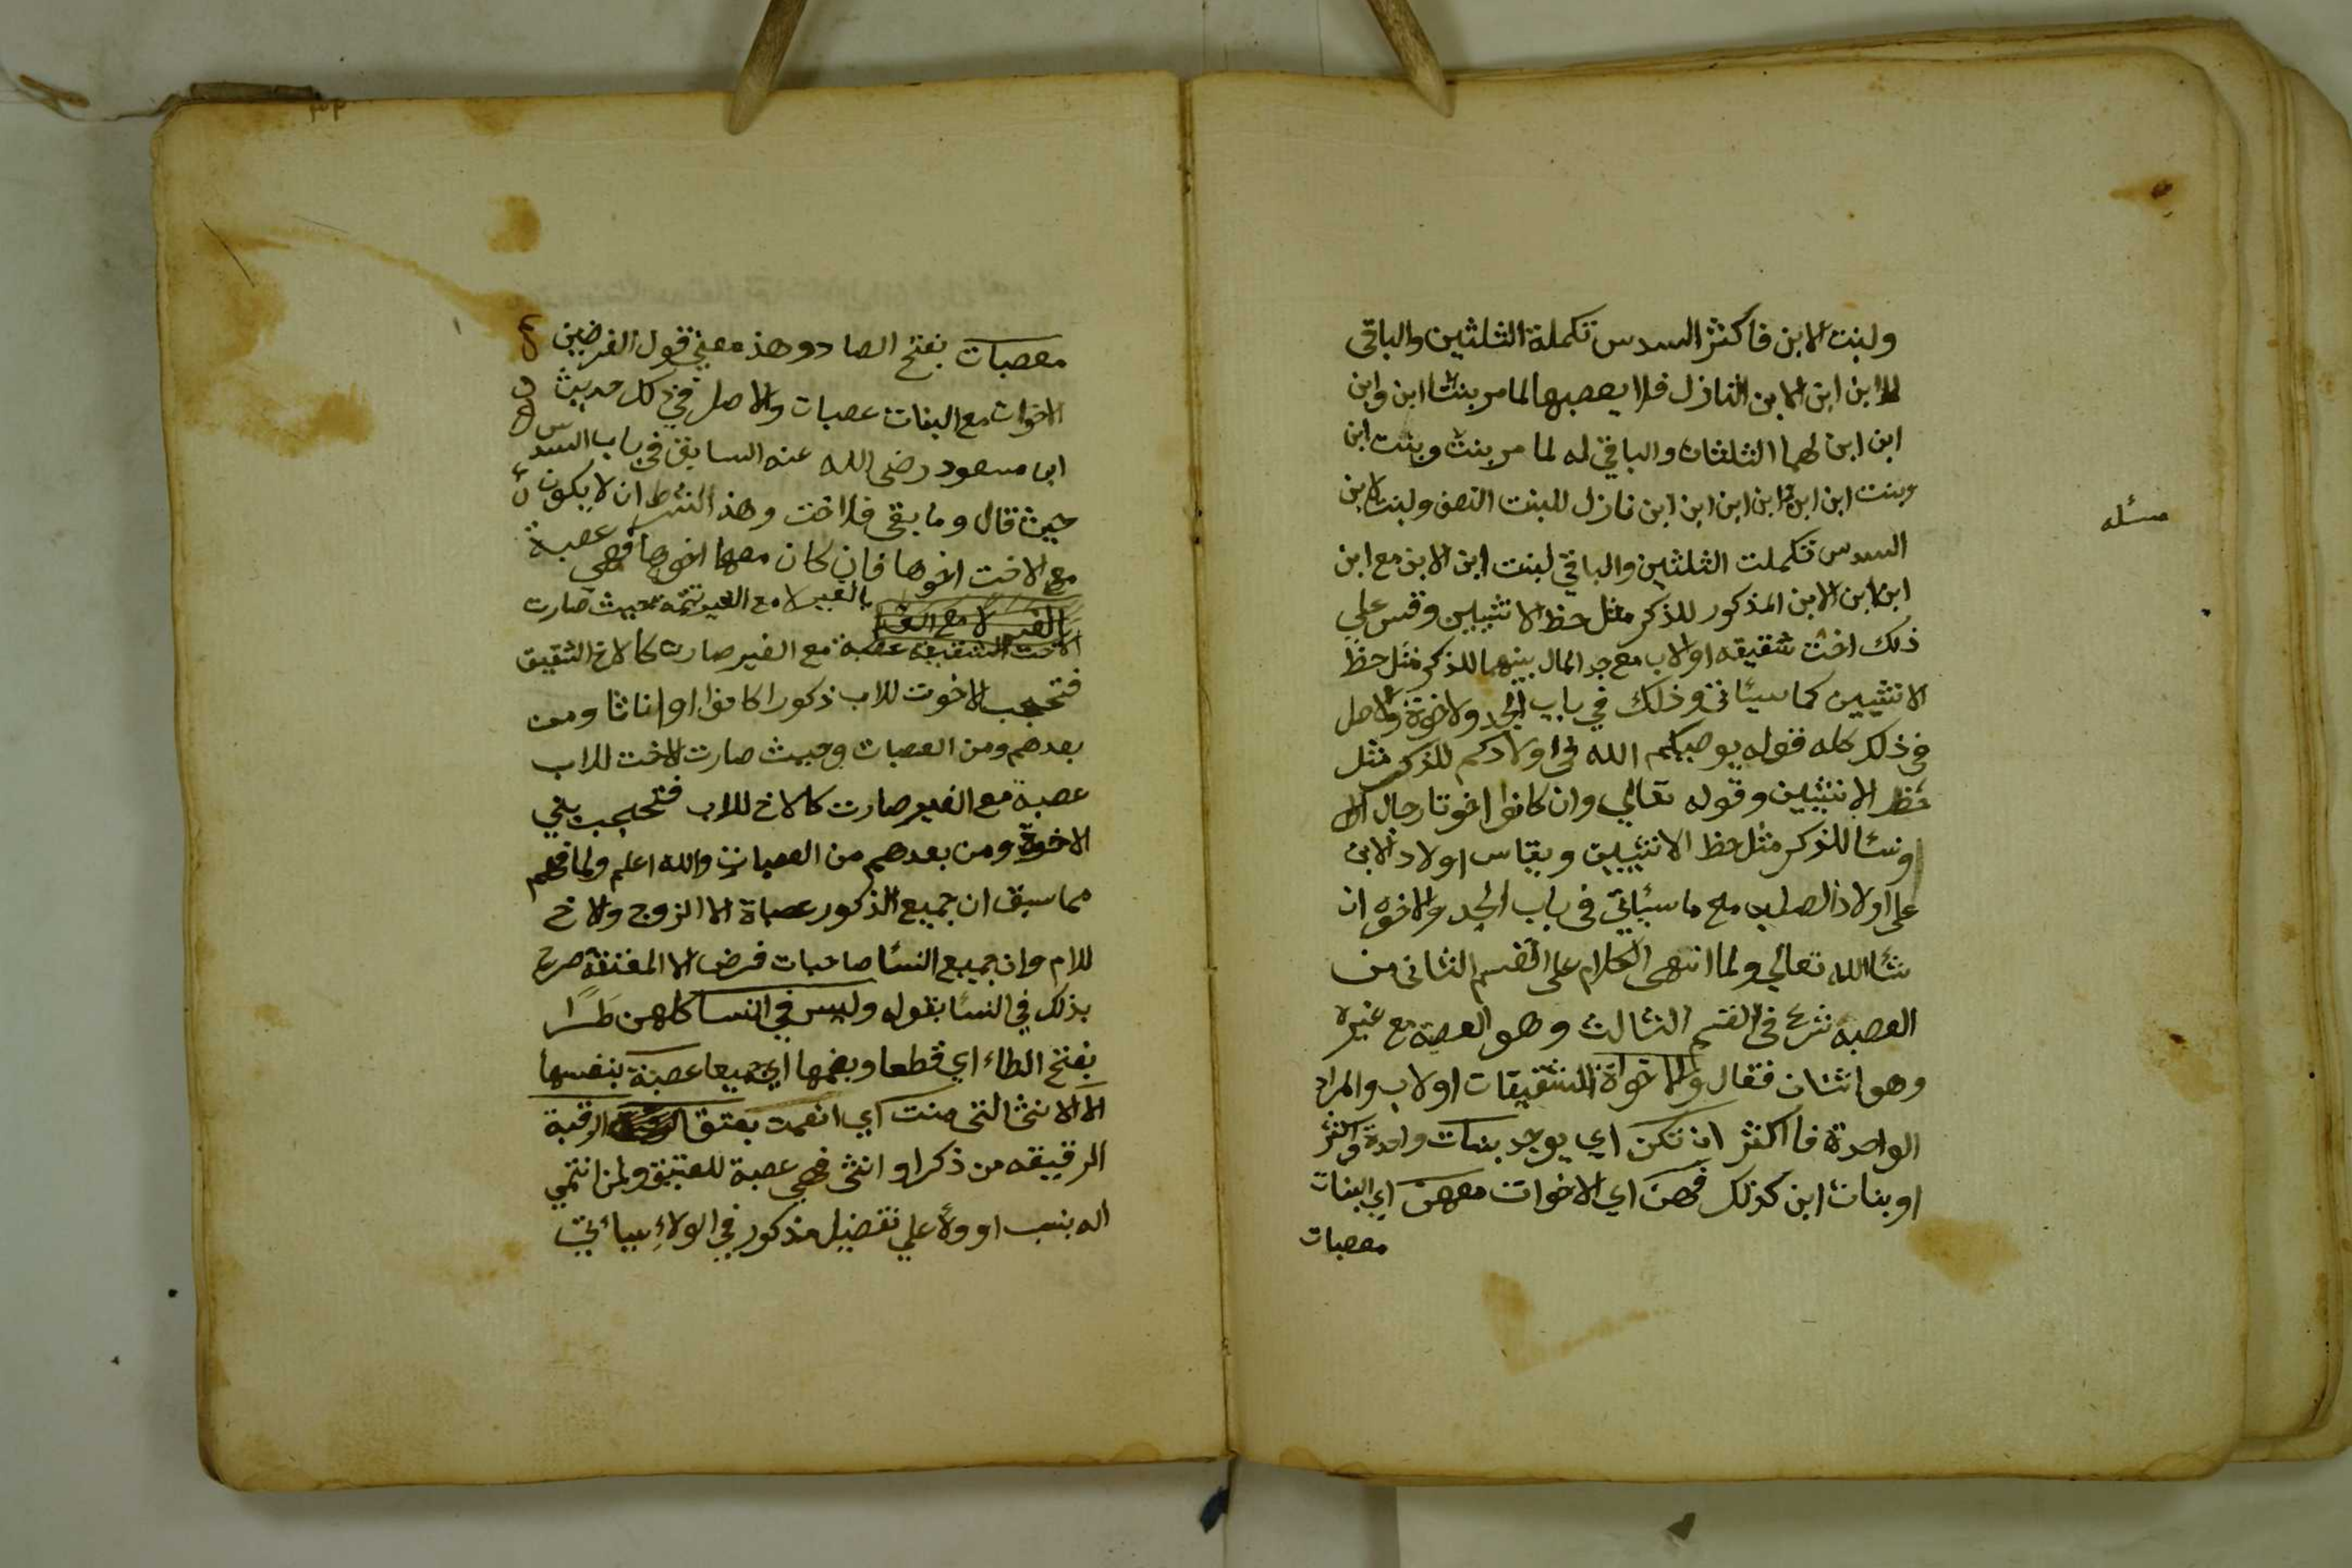 ولبنت الابن فاكثر السدس تكملة الثلثين والباقى
لابن ابن الابن النازل فلا يعصبها لما مر بنتا ابن وابن
ابن ابن لهما الثلثان والباقي له لما مر بنت وبنت ابن
وبنت ابن ابن وابن ابن ابن ابن نازل للبنت النصف ولبنت الابن
مسئله
السدس تكملت الثلثين والباقي لبنت ابن الابن مع ابن
ابن ابن الابن المذكور للذكر مثل حظ الانثيين وقس علي
ذلك اخت شقيقه او لاب مع جد المال بينهما للذكر مثل حظ
الانثيين كما سيئاتى وذلك في باب الجد ولاخوة والاصل
في ذلك كله قوله يوصيكم الله فى اولادكم للذكر مثل
حظ الانثيين وقوله تعالي وان كانوا اخوتا رجال الا
ونسا للذكر مثل حظ الانثيين ويقاس اولاد الابن
على اولاد الصلب مع ما سيئاتي فى باب الجد والاخوه ان
شا الله تعالي ولما انتهى الكلام على القسم الثانى من
العصبه شرع فى القسم الثالث وهو العصبة مع غيره
وهو اثنان فقال والاخواة الشقيقات او لاب والمراد
الواحدة فاكثر ان تكن اي يوجد بنات واحدة فاكثر
او بنات ابن كذلك فهن اي الاخوات معهن اي البنات
معصبات
٣٣
معصبات بفتح الصاد وهذ معني قول الفرضيين
الاخوات مع البنات عصبات والاصل في ذلك حديث
ابن مسعود رضى الله عنه السابق في باب السدس
حيث قال وما بقي فلاخت وهذ الشرط ان لا يكون
مع الاخت اخوها فان كان معها اخوها فهي عصبة
بالغير لا مع الغير تتمه حيث صارت
بالغير لا مع الغير
الاخت الشقيقه عصبة مع الغير صارت كالاخ الشقيق
فتحجب الاخوت للاب ذكورا كانوا او اناثا ومن
بعدهم ومن العصبات وحيث صارت الاخت للاب
عصبة مع الغير صارت كالاخ للاب فتحجب بني
الاخوة ومن بعدهم من العصبات والله اعلم ولما فهم
مما سبق ان جميع الذكور عصباة الا الزوج ولاخ
للام وان جميع النسا صاحبات فرض الا المعتقة صرح
بذلك في النسا بقوله وليس في النسا كلهن طرا
بفتح الطاء اي قطعا وبضمها اي جميعا عصبة بنفسها
الا الانثا التى منت اي انعمت بعتق الرقبة
الرقيقه من ذكر او انثى فهي عصبة للعتيق ولمن انتمي
اله بنسب او ولأ علي تفضيل مذكور في الولاء سيائتي